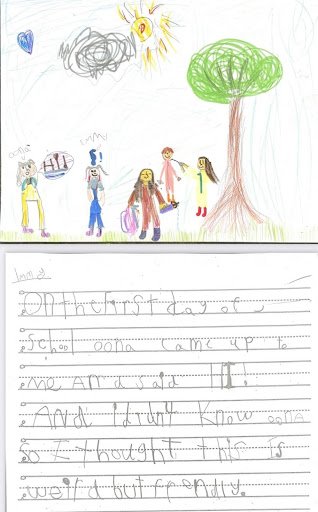 oona
HI!
Immy
Immy
On the first day of
school oona came up to
me and said HI!
And i didn't know oona
so I thought this is
weird but friendly.